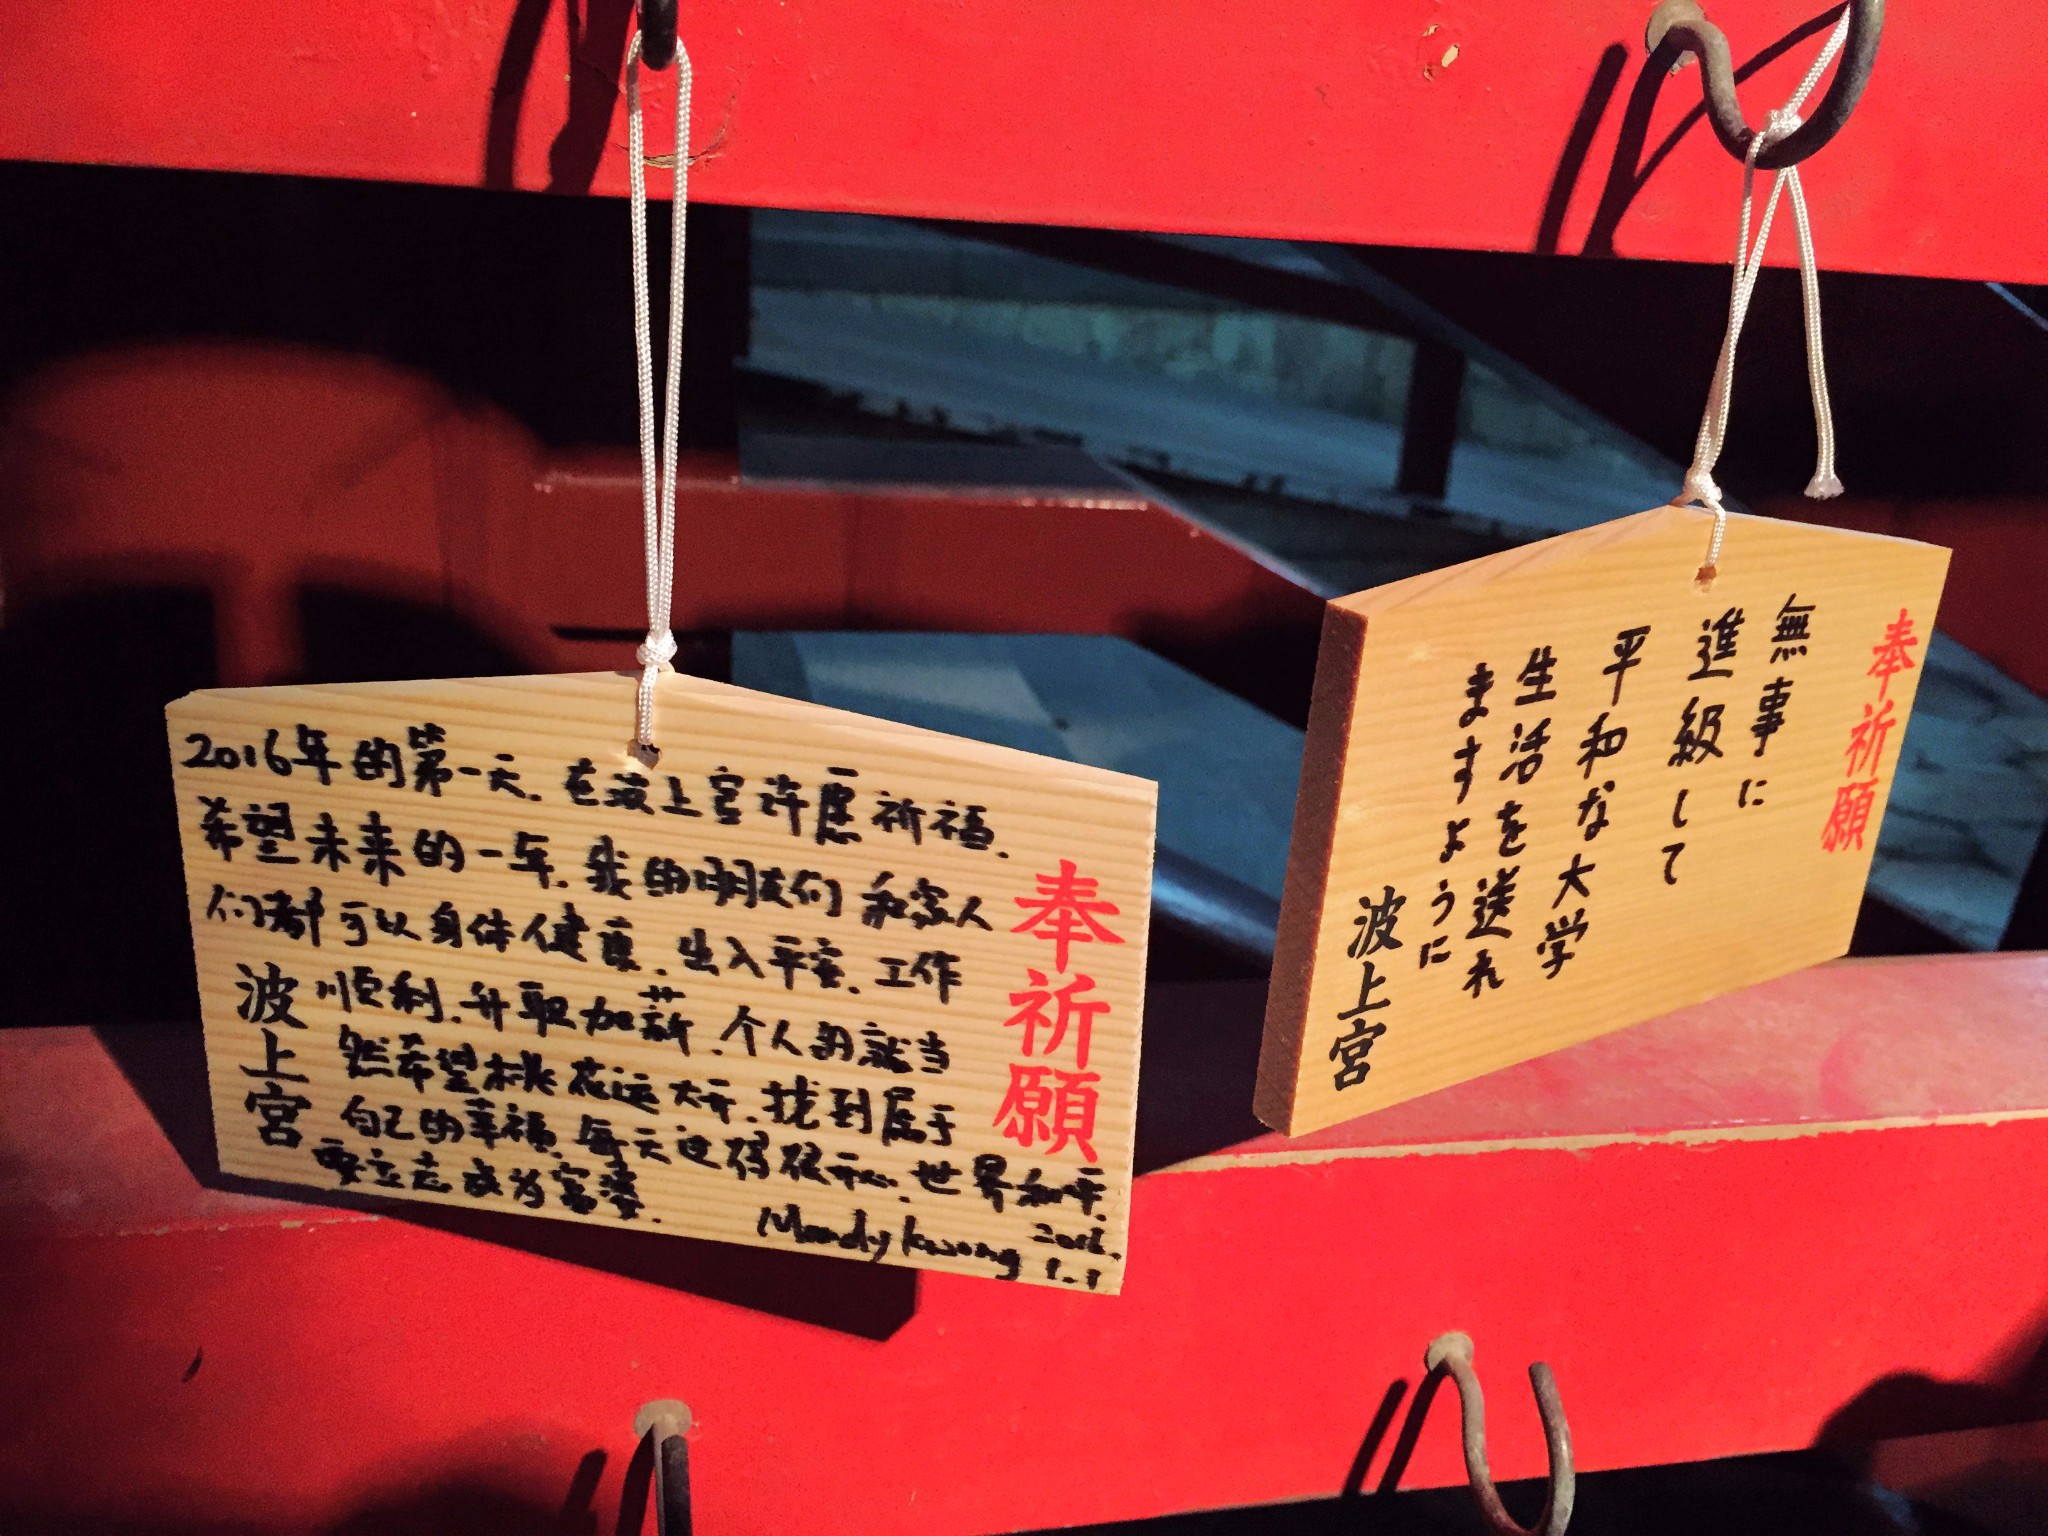 2016年的第一天.在波上宫许愿祈福.
希望未来的一年.我的朋友们和家人
们都可以身体健康.出入平安.工作
顺利.升职加薪.个人的就当
然希望桃花运大开.找到属于
自己的幸福.每天过得很开心.世界和平.
要立志成为富婆.
Mandy Kwong 2016.
1.1
奉祈願
波上宮
奉祈願
無事に
進級して
平和な大学
生活を送れ
ますように
波上宮